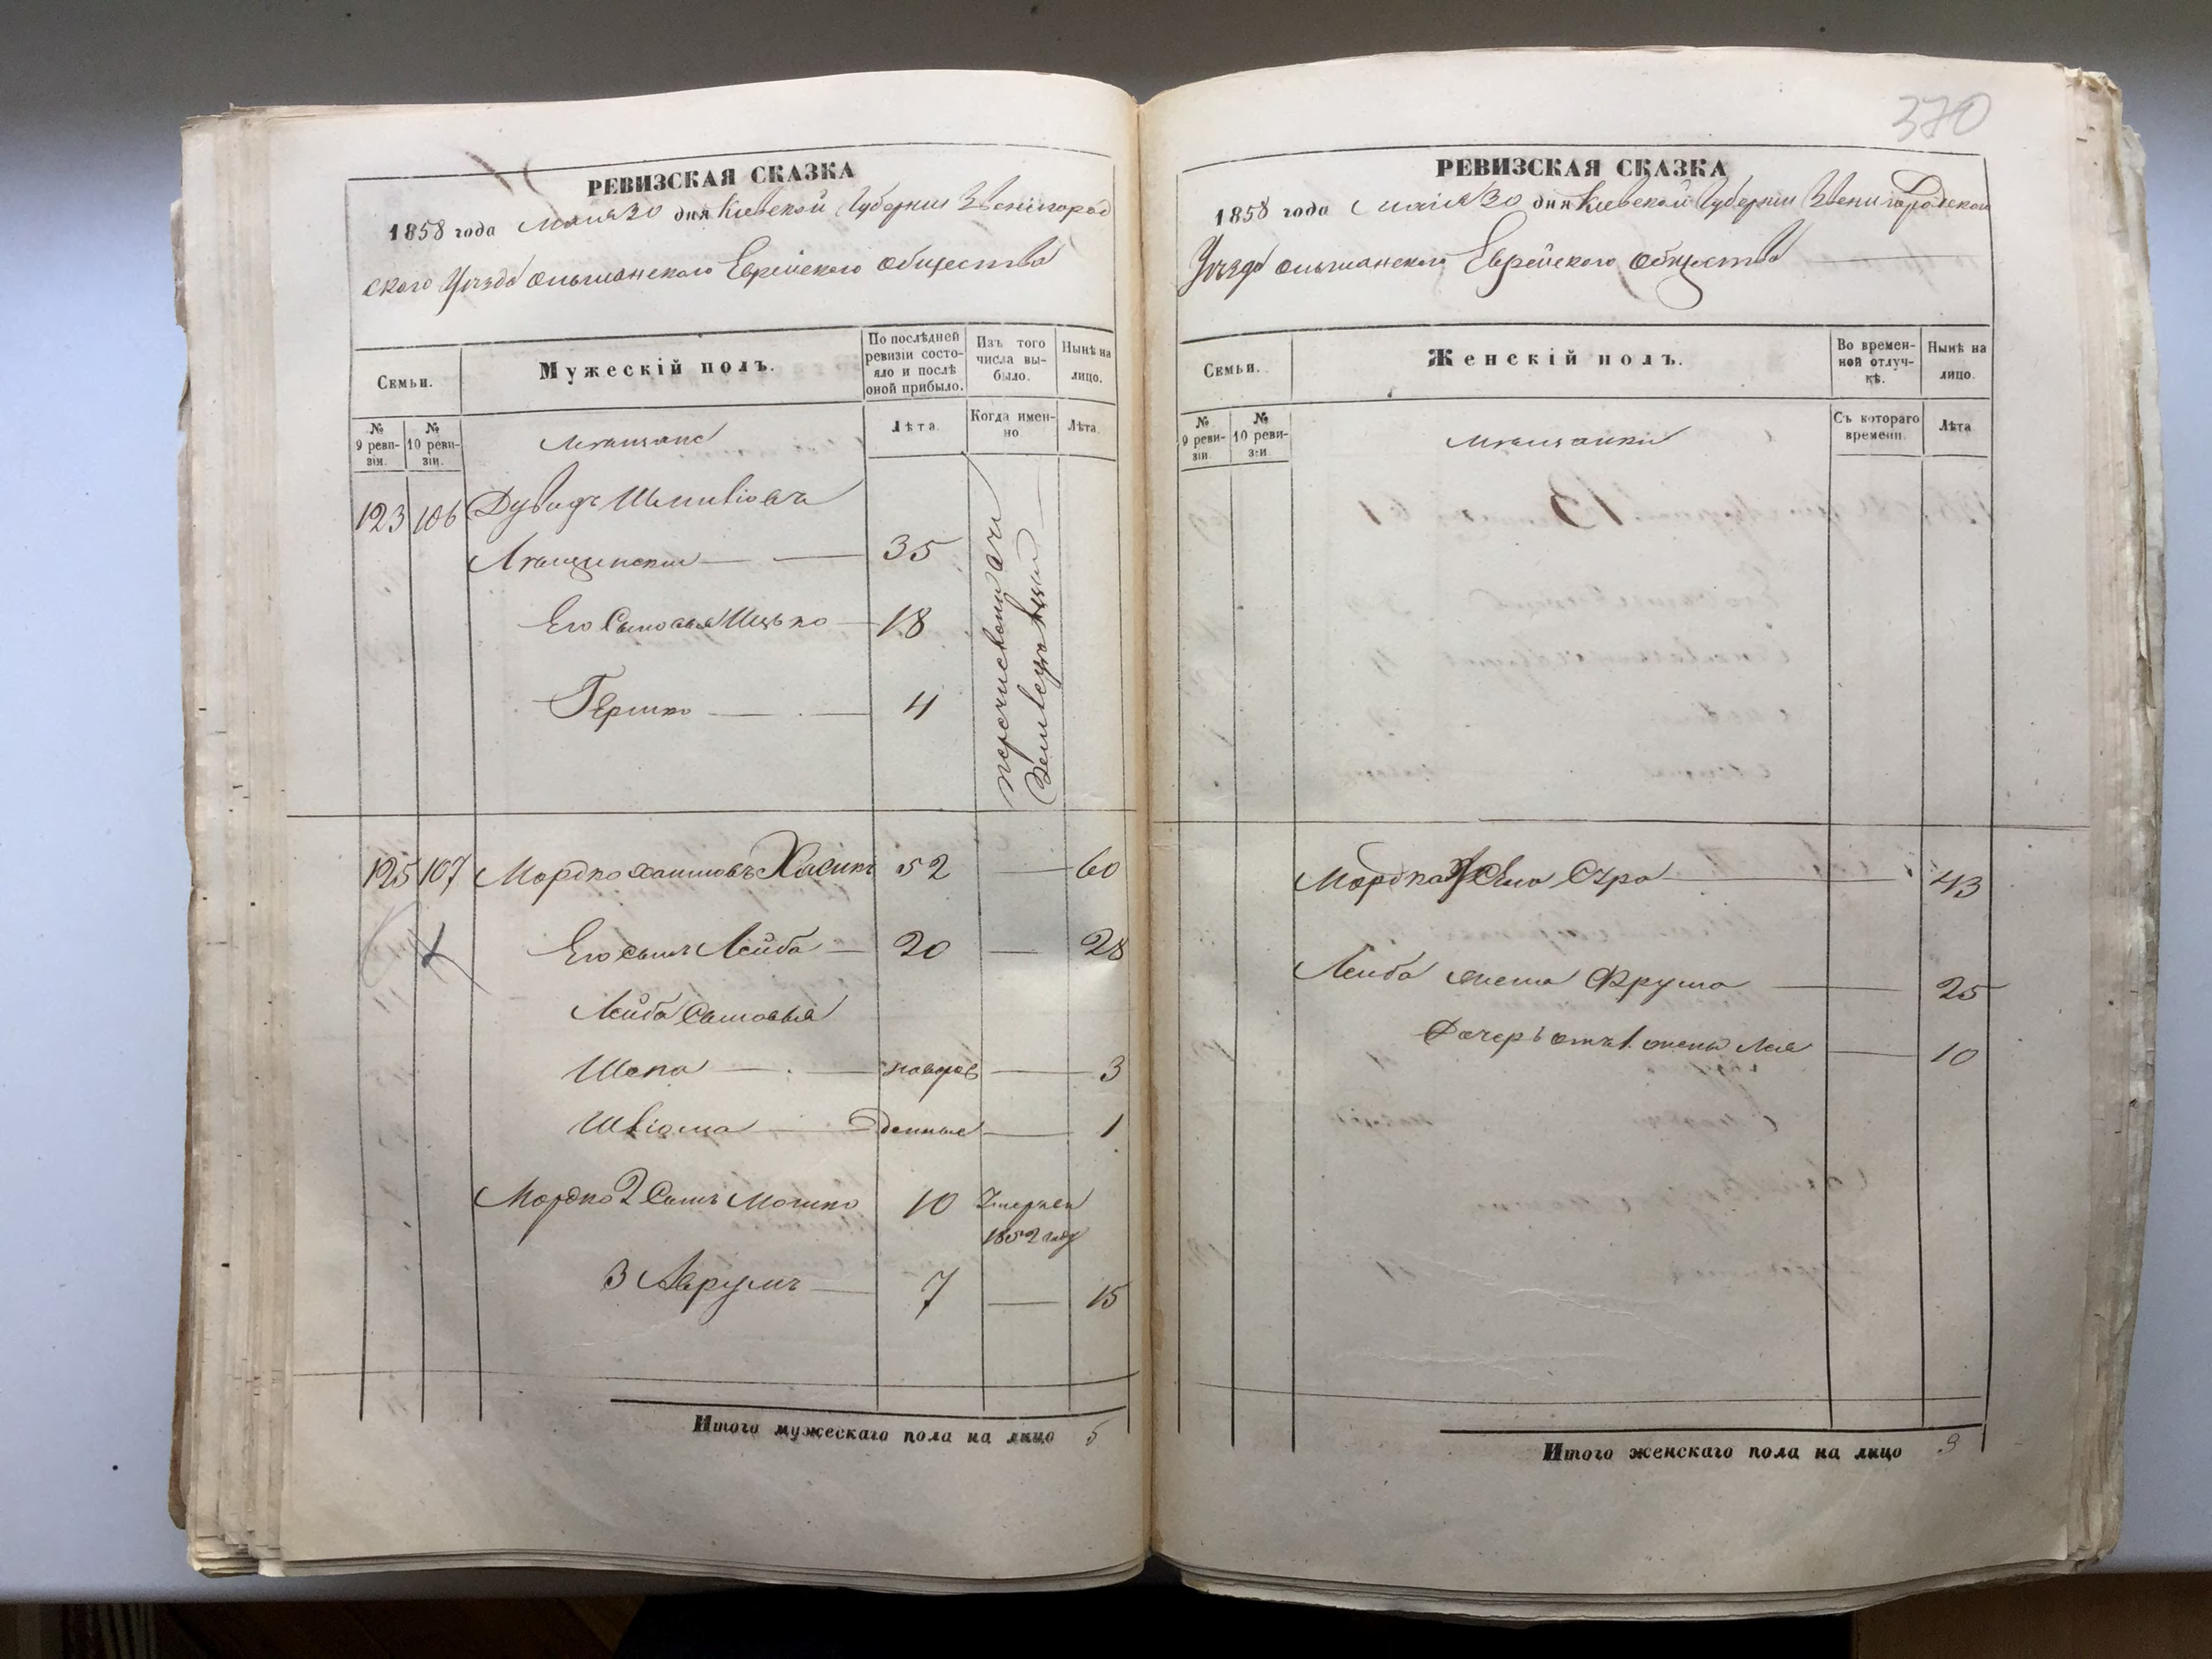 370
РЕВИЗСКАЯ СКАЗКА
1858 года мая 30 дня Киевской Губернии Звенигород
ского Уезда Ольшанского Еврейского Общества
Семьи.
Мужескій полъ.
По послѣдней ревизіи состояло и послѣ оной прибыло.
Изъ того числа выбыло.
Нынѣ на лицо.
№ 9 ревизіи.
№ 10 ревизіи.
Мещане
Лѣта.
Когда именно
Лѣта.
123 106 Дувидъ
35
Его Сыновья Ицько 18
Гершко 4
перечислены
125 107 Мордко Хаимовъ Хасинъ 52 60
Его сынъ Лейба 20 28
Лейба Сыновья
новорож 3
денные 1
Мордко 2 Сынъ Мошко 10 Умеръ
1852 году
3 Аврумъ 7 15
Итого мужескаго пола на лицо 5
РЕВИЗСКАЯ СКАЗКА
1858 года мая 30 дня Киевской Губернии Звенигородского
Уезда Ольшанского Еврейского Общества
Семьи.
Женскій полъ.
Во временной отлучкѣ.
Нынѣ на лицо.
№ 9 ревизіи
№ 10 ревизіи
Мещанки
Съ котораго времени.
Лѣта
Мордка Жена Сура 43
Лейба жена Фрума 25
Дочерь отъ 1 жены Лея 10
Итого женскаго пола на лицо 3